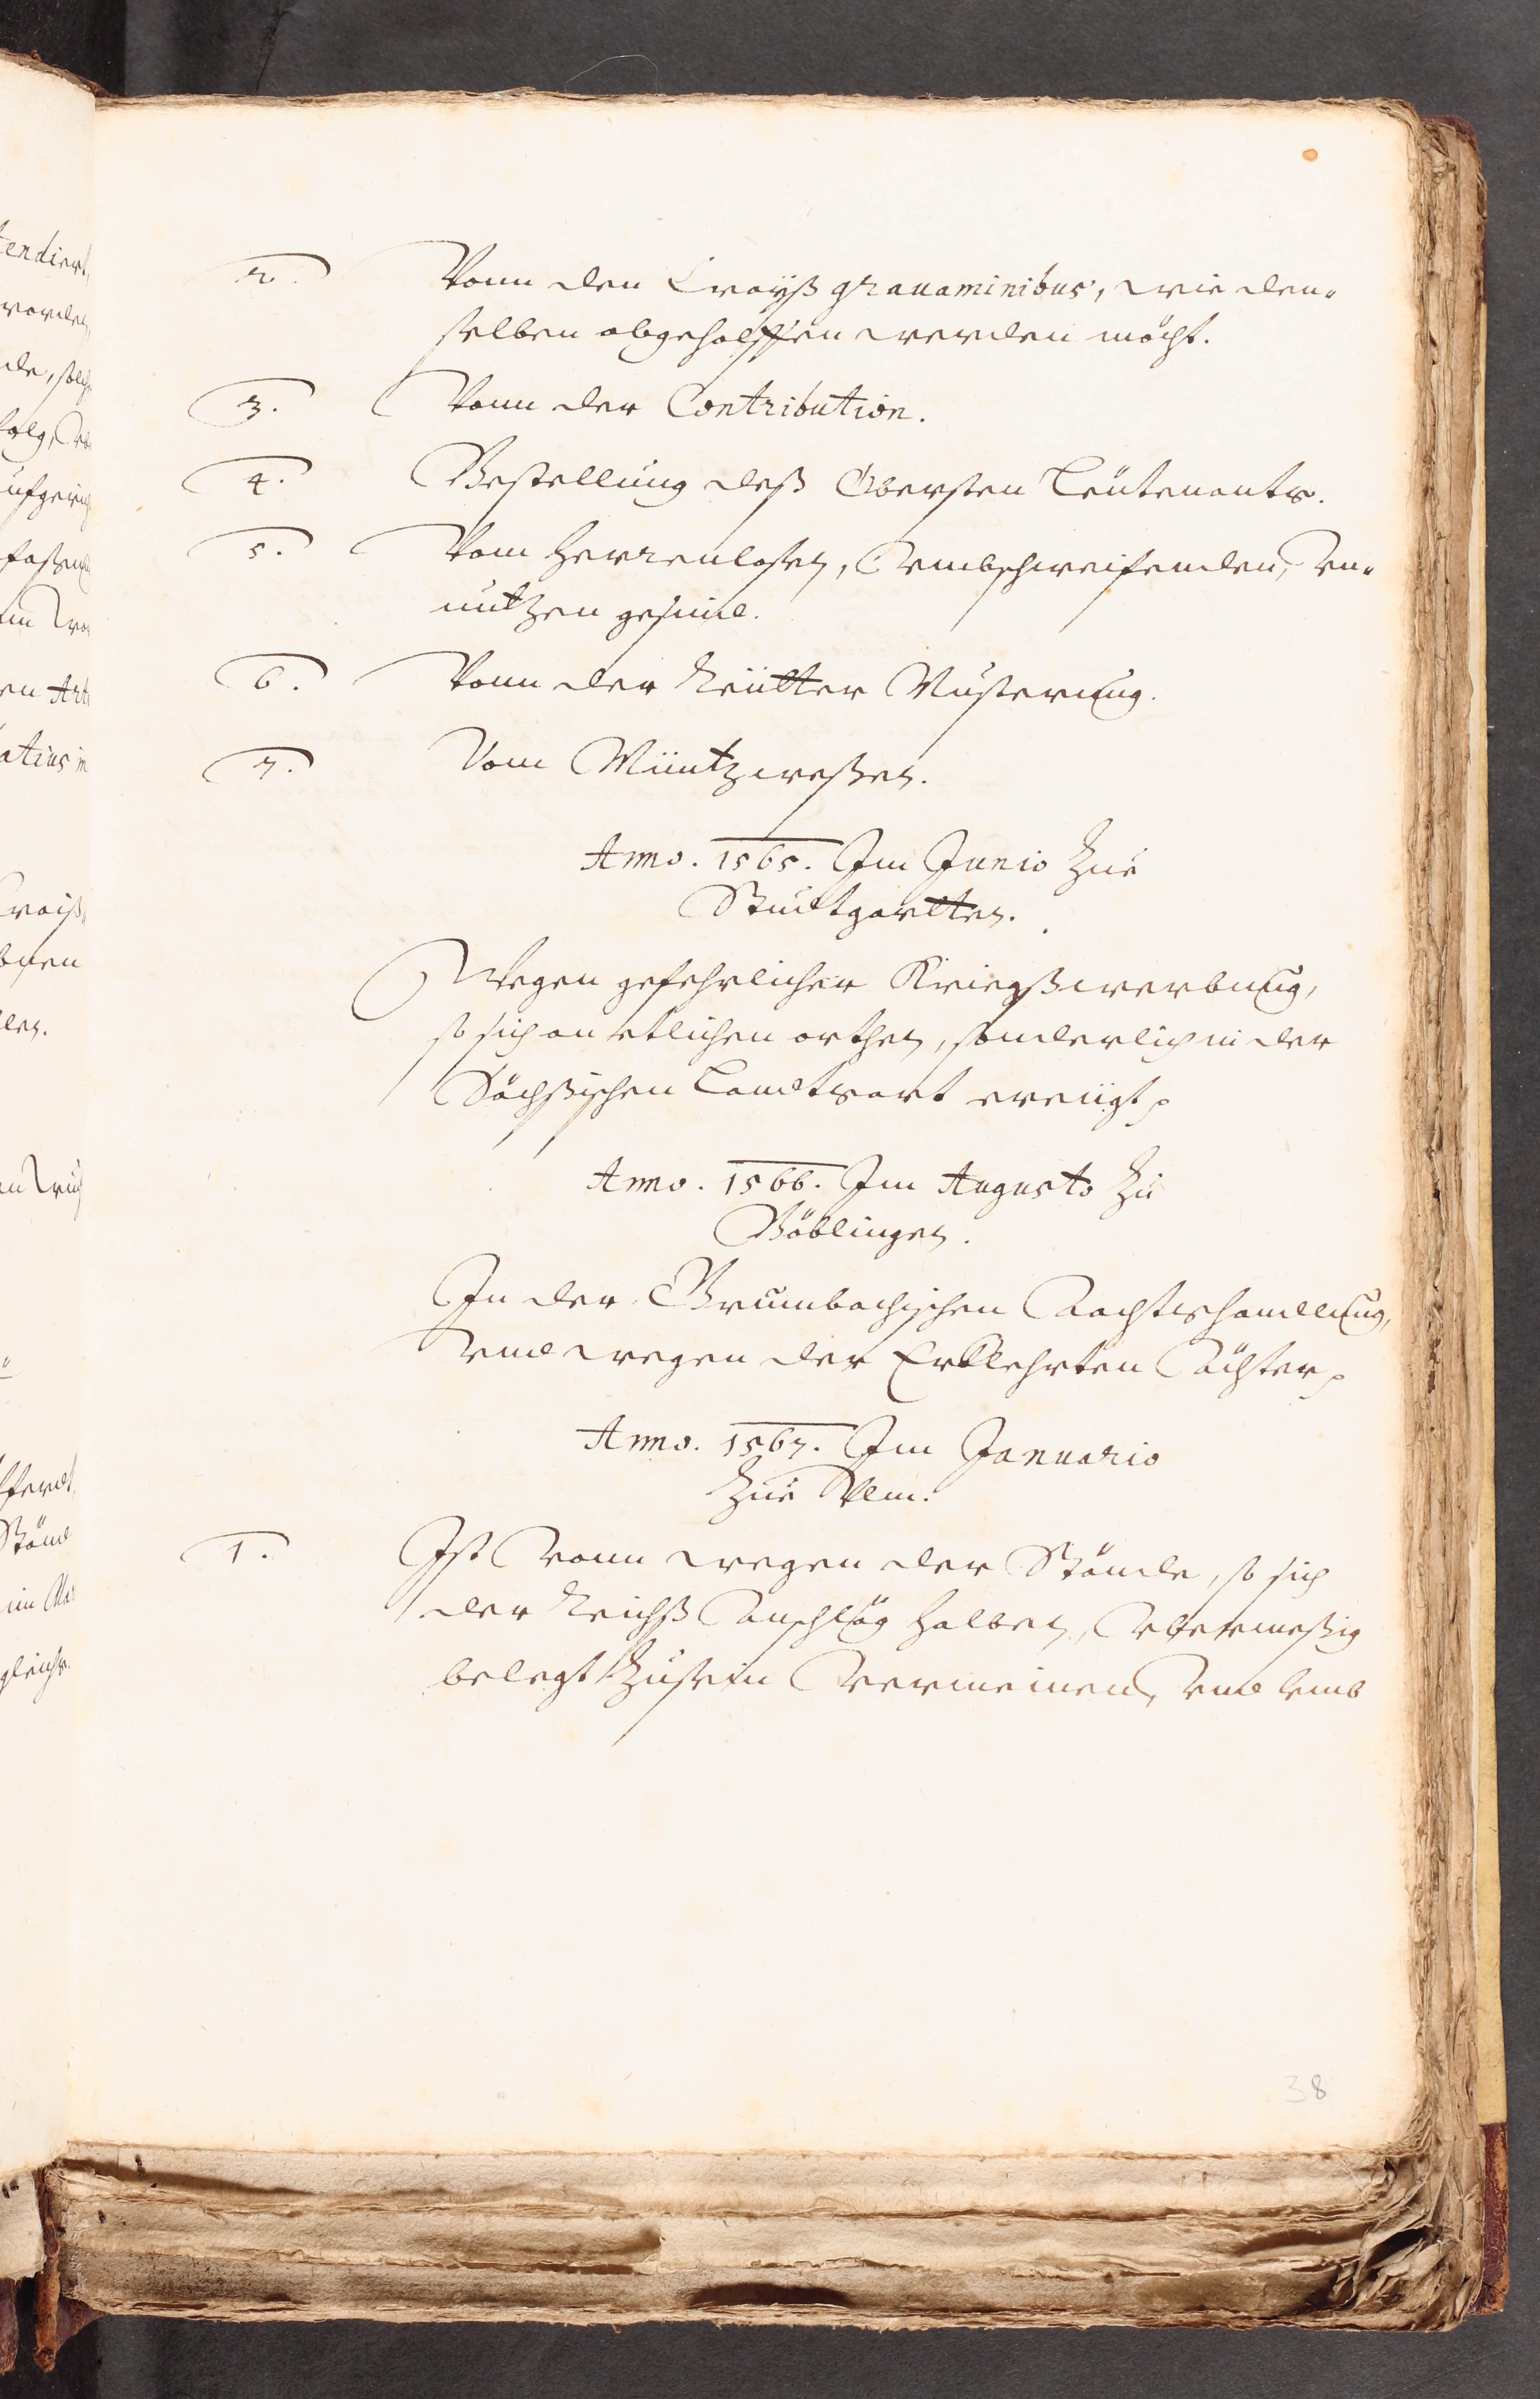 2. Vonn den Crayß grauaminibus, wie den-
selben abgeholffen werden möcht.
3. Vonn der Contribution.
4. Bestellung deß Obersten Leütenants.
5. Vom herrenlosen, vmbschweifenden, vn-
nutzen gesind.
6. Vonn der Reütter Musterung.
7. Vom Müntzweßen.
Anno. 1565. Im Junio Zue
Stuttgartten.
Wegen gefehrlicher Kriegßwerbung,
so sich an etlichen orthen, sonderlich in der
Sächßischen Landtsart ereügt
Anno. 1566. Im Augusto Zu
Böblingen.
In der Grumbachischen Aachtshandlung,
vnd wegen der Erklehrten Ächter
Anno. 1567. Im Januario
Zue Vlm.
1. Ist vonn wegen der Stände, so sich
der Reichß Anschläg halben, vbermeßig
belegt Zusein vermeinen, vnd vmb
38